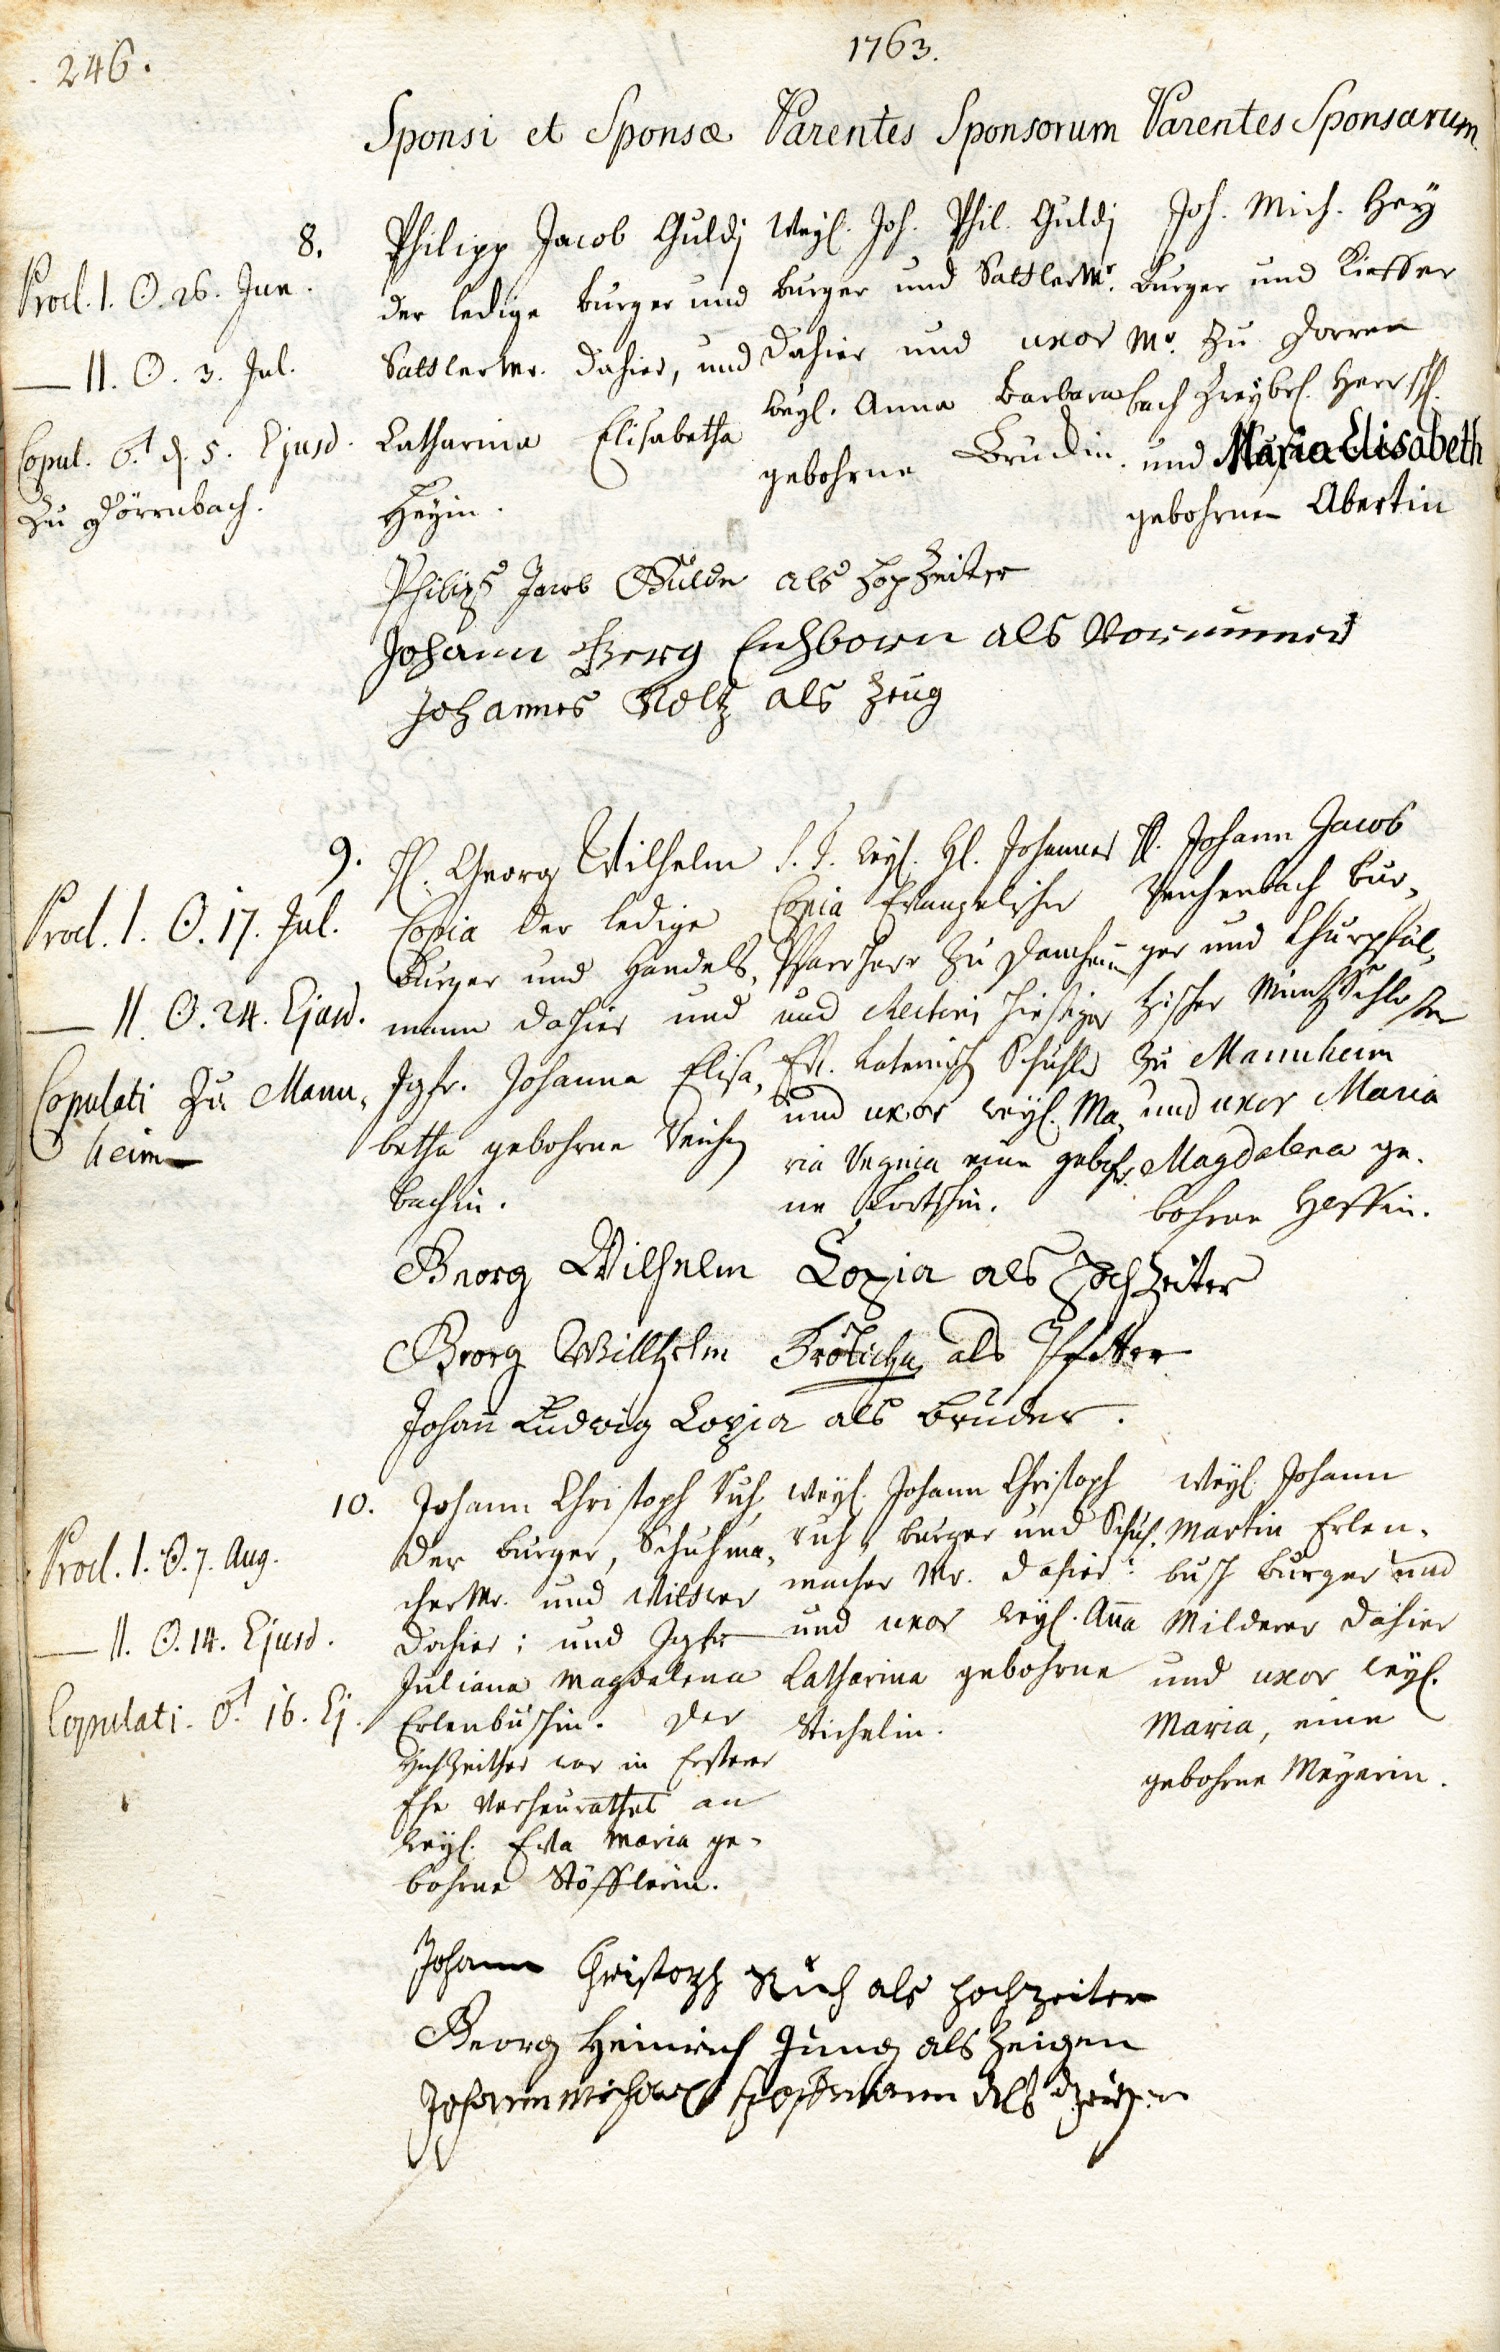 246.
1763.
Sponsi et Sponsæ Parentes Sponsorum Parentes Sponsarum.
8.
Procl. I. ☉. 26. Jun.
— II. ☉. 3. Jul.
Copul. ♂. d. 5. Ejusd.
zu Dörrenbach.
Philipp Jacob Guldj
der ledige burger und
Sattler Mr. dahier, und
Catharina Elisabetha
Heyin.
Weyl. Joh. Phil. Guldj
burger und Sattler Mr.
dahier und uxor
weyl. Anna Barbara
gebohrne Brudin.
Joh. Mich. Hey
burger und Kieffer
Mr. zu Dorren
bach Zweybr. Herrsch.
und Maria Elisabeth
gebohrne Abertin
Philips Jacob Gulde als Hochzeiter
Johann Georg Eichborn als Vormund
Johannes Voltz als Zeug
9.
Procl. I. ☉. 17. Jul.
— II. ☉. 24. Ejusd.
Copulati zu Mann-
heim
H. Georg Wilhelm
Copia der ledige
Burger und Handels-
mann dahier und
Jgfr. Johanna Elisa-
betha gebohrne Reichen
bachin.
S. T. weyl. H. Johannes
Copia Evangelischer
Pfarrherr zu
und Rectoris hiesiger
Ev. Lateinisch Schuhle
und uxor weyl. Ma-
ria eine gebohr-
ne
H. Johann Jacob
Reichenbach bur-
ger und Churpfäl-
zischer Müntz Schlosser
zu Mannheim
und uxor Maria
Magdalena ge-
bohrne Hessin.
Georg Wilhelm Copia als Hochzeiter
Georg Willhelm Frölich als Pfetter
Johann Ludwig Copia als bruder.
10.
Procl. I. ☉. 7. Aug.
— II. ☉. 14. Ejusd.
Copulati. ♂. 16. Ej.
Johann Christoph Ruh,
der burger, Schuhma-
cher Mr. und Witwer
dahier; und Jgfr.
Juliana Magdalena
Erlenbuschin. Der
Hochzeither war in Ersterer
Ehe verheurathet an
weyl. Eva Maria ge-
bohrne Stöfflerin.
Weyl. Johann Christoph
Ruh, burger und Schuh-
macher Mr. dahier:
und uxor weyl. Anna
Catharina gebohrne
Stichelin.
Weyl. Johann
Martin Erlen-
busch burger und
Milderer dahier
und uxor weyl.
Maria, eine
gebohrne Meyerin.
Johann Christoph Ruh als Hochzeiter
Georg Heinrich Jung als Zeigen
Johann Michael Hoffmann als Zeigen